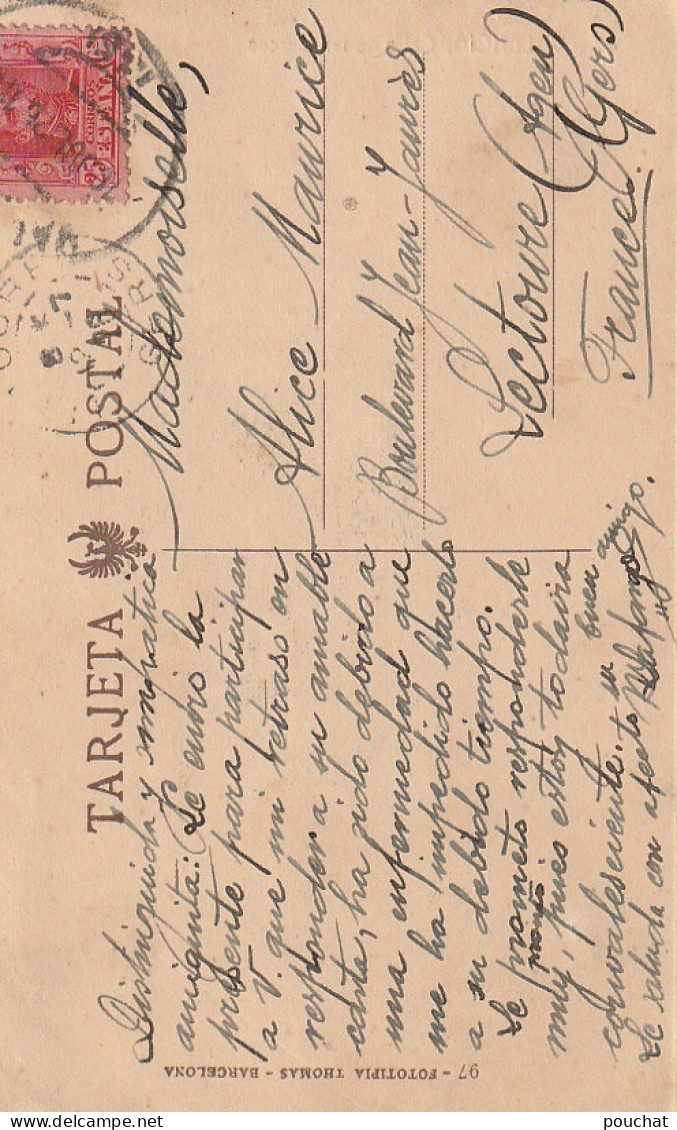 TARJETA POSTAL
Distinguida y simpática
amiguita: Le envio la
presente para participar
a V. que mi retraso en
responder a su amable
carta, ha sido debido a
una enfermedad que
me ha impedido hacerlo
a su debido tiempo.
Le prometo responderle
muy pronto, pues estoy todavia
convaleciente. su buen amigo
Le saluda con afecto
97 - FOTOTIPIA THOMAS - BARCELONA
Mademoiselle,
Alice Maurice
Boulevard Jean-Jaurès
Lectoure (Agen)
(Gers)
France.
CORREOS
pouchat